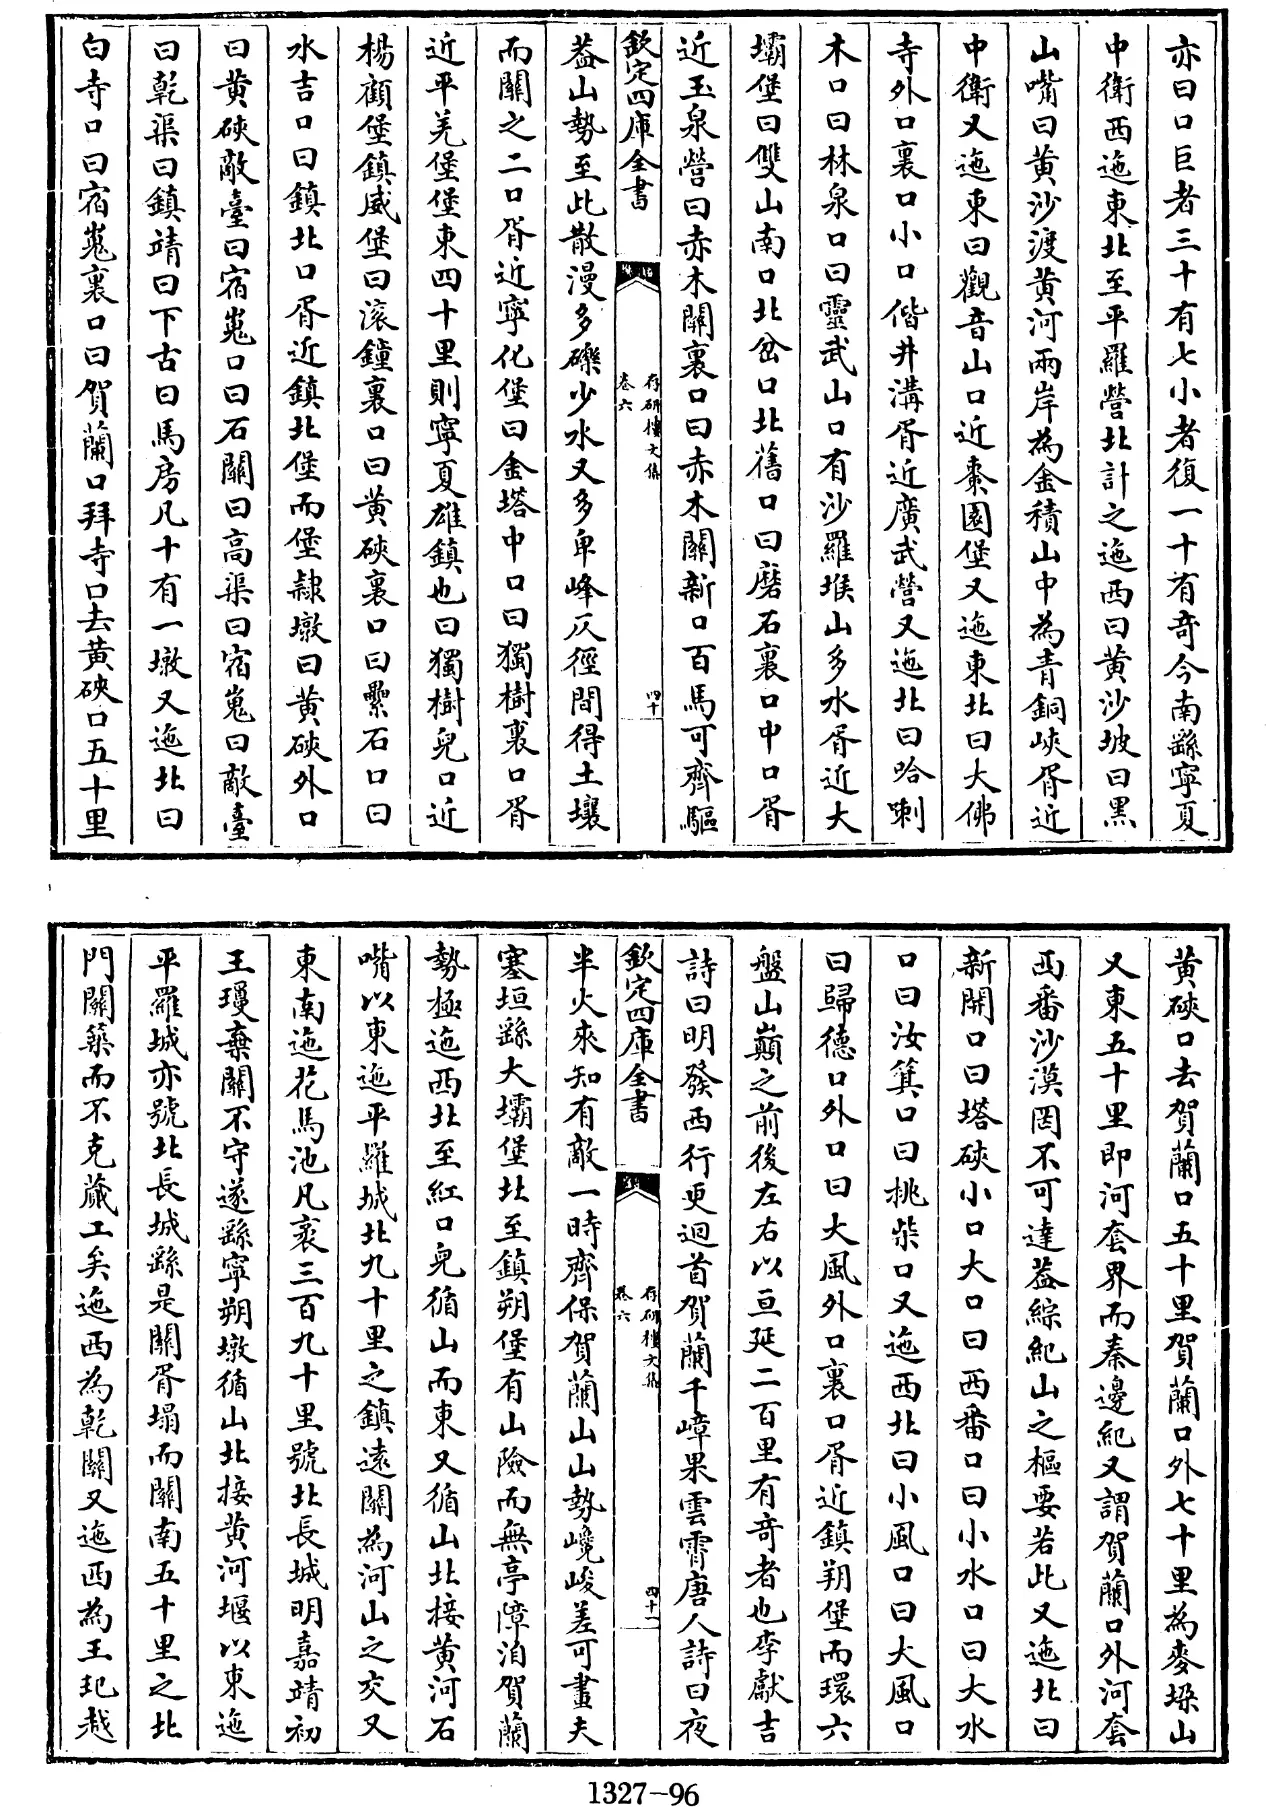 亦曰口巨者三十有七小者復一十有奇今南繇寧夏
中衛西迤東北至平羅營北計之迤西曰黄沙坡曰黑
山嘴曰黄沙渡黄河兩岸為金積山中為青銅峽胥近
中衛又迤東曰觀音山口近棗園堡又迤東北曰大佛
寺外口裏口小口偕井溝胥近廣武營又迤北曰哈喇
木口曰林泉口曰靈武山口有沙羅堠山多水胥近大
壩堡曰雙山南口北岔口北舊口曰磨石裏口中口胥
近玉泉營曰赤木關裏口曰赤木關新口百馬可齊驅
欽定四庫全書
存研樓文集
卷六
四十
葢山勢至此散漫多礫少水又多卑峰仄徑間得土壤
而關之二口胥近寧化堡曰金塔中口曰獨樹裏口胥
近平羌堡堡東四十里則寧夏雄鎮也曰獨樹兒口近
楊顧堡鎮威堡曰滚鐘裏口曰黄硤裏口曰纍石口曰
水吉口曰鎮北口胥近鎮北堡而堡隷墩曰黄硤外口
曰黄硤敵臺曰宿嵬口曰石關曰高渠曰宿嵬曰敵臺
曰乾渠曰鎮靖曰下古曰馬房凡十有一墩又迤北曰
白寺口曰宿嵬裏口曰賀蘭口拜寺口去黄硤口五十里
黄硤口去賀蘭口五十里賀蘭口外七十里為麥垜山
又東五十里即河套界而秦邊紀又謂賀蘭口外河套
西番沙漠罔不可達葢綜紀山之樞要若此又迤北曰
新開口曰塔硤小口大口曰西番口曰小水口曰大水
口曰汝箕口曰桃柴口又迤西北曰小風口曰大風口
曰歸德口外口曰大風外口裏口胥近鎮朔堡而環六
盤山巔之前後左右以亘延二百里有奇者也李獻吉
詩曰明發西行更迴首賀蘭千嶂果雲霄唐人詩曰夜
欽定四庫全書
存研樓文集
卷六
四十一
半火來知有敵一時齊保賀蘭山山勢巉峻差可畫夫
塞垣繇大壩堡北至鎮朔堡有山險而無亭障洎賀蘭
勢極迤西北至紅口兒循山而東又循山北接黄河石
嘴以東迤平羅城北九十里之鎮遠關為河山之交又
東南迤花馬池凡袤三百九十里號北長城明嘉靖初
王瓊棄關不守遂繇寧朔墩循山北接黄河堰以東迤
平羅城亦號北長城繇是關胥塌而關南五十里之北
門關築而不克蕆工矣迤西為乾關又迤西為王玘越
1327-96